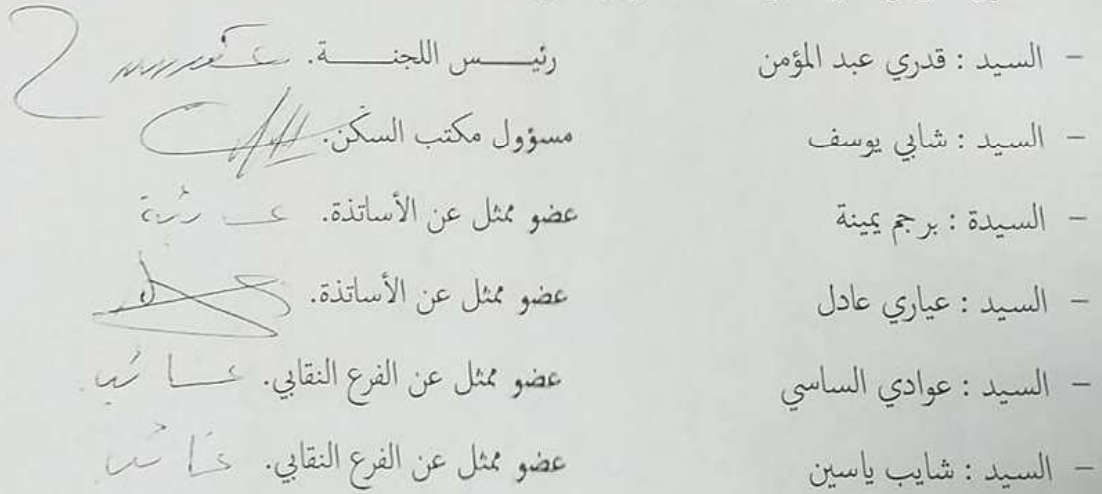 – السيد : قدري عبد المؤمن رئيس اللجنة.
– السيد : شابي يوسف مسؤول مكتب السكن.
– السيدة : برجم يمينة عضو ممثل عن الأساتذة. غائبة
– السيد : عياري عادل عضو ممثل عن الأساتذة.
– السيد : عوادي الساسي عضو ممثل عن الفرع النقابي. غائب
– السيد : شايب ياسين عضو ممثل عن الفرع النقابي. غائب